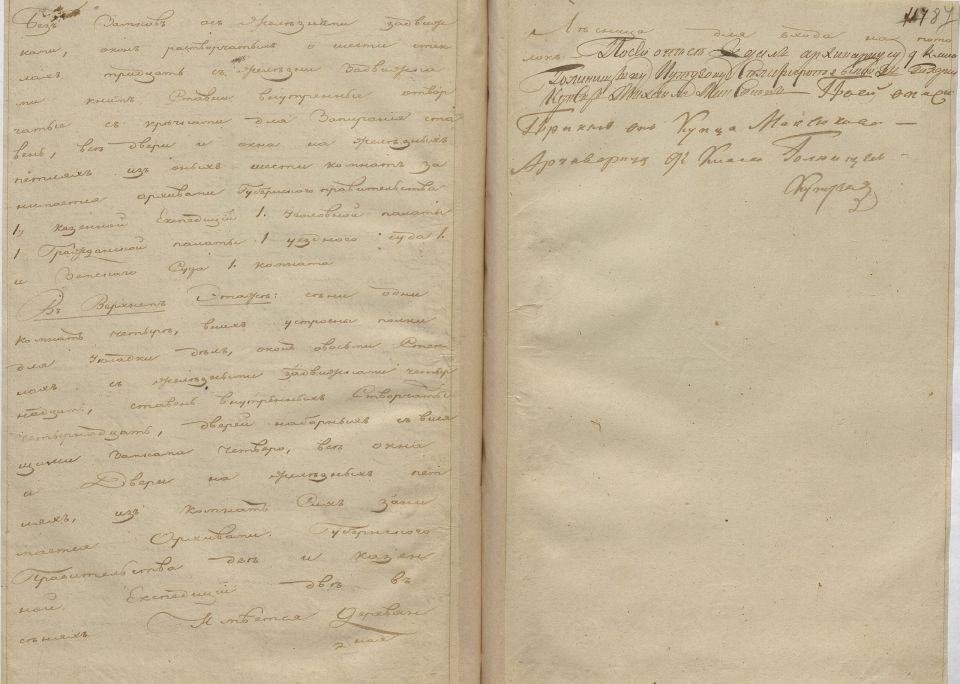 безъ замковъ съ желѣзными задвиж
ками, оконъ растворчатыхъ о шести стек
лахъ тридцать съ желѣзными задвижка
ми книмъ ставни внутренные створ
чатые съ крючками для запирания ста
вень, всѣ двери и окна на желѣзныхъ
петляхъ изъ оныхъ шести комнатъ за
нимается архивами Губернского правительства
1, казенной Експедиции 1. уголовной палаты
1 Гражданской палаты 1 уездного суда 1.
и Земского Суда 1. комната
Въ Верхнемъ Этажѣ: сѣни одни
комнатъ четыре, внихъ устроены полки
для укладки дѣлъ, оконъ овосьми стек
лахъ съ желѣзными задвижками четыр
надцать, ставень внутренныхъ створчатыхъ
четырнадцать, дверей наборныхъ съ вися
щими замками четверо, всѣ окна
и двери на желѣзныхъ пет
ляхъ, изъ комнатъ сихъ зани
мается Архивами. Губернского
Правительства двѣ и казен
ной Експедиции двѣ въ
сѣняхъ Имѣется деревян
ная
87
лѣсница для входа на пото
локъ. По сей описи
принялъ отъ Купца